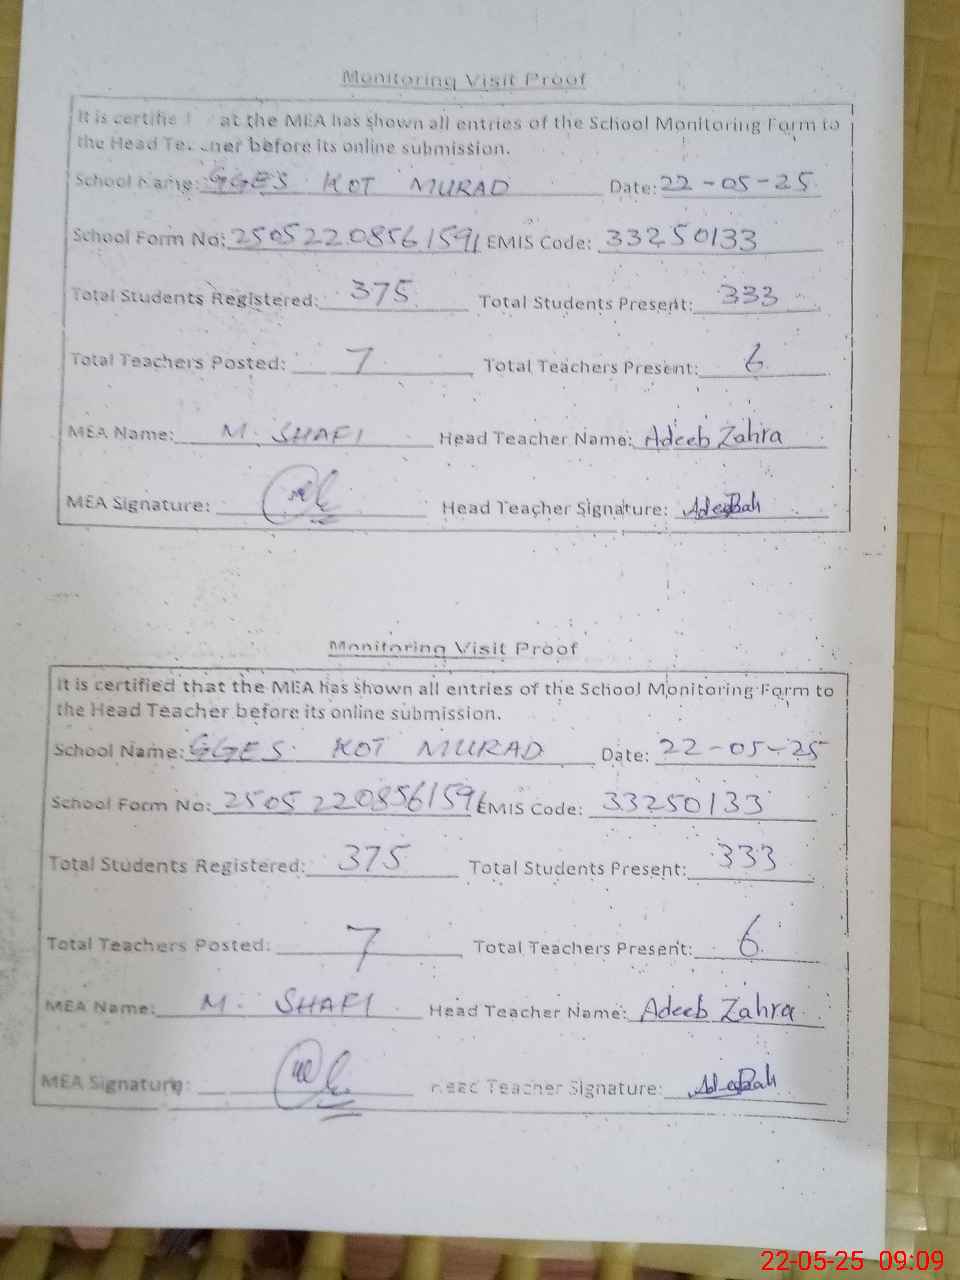 Monitoring Visit Proof
It is certifie at the MEA has shown all entries of the School Monitoring Form to
the Head Te cher before its online submission.
School Name: GGES KOT MURAD Date: 22-05-25
School Form No: 25052208561591 EMIS Code: 33250133
Total Students Registered: 375 Total Students Present: 333
Total Teachers Posted: 7 Total Teachers Present: 6
MEA Name: M. SHAFI Head Teacher Name: Adeeb Zahra
MEA Signature: Head Teacher Signature:
Monitoring Visit Proof
It is certified that the MEA has shown all entries of the School Monitoring Form to
the Head Teacher before its online submission.
School Name: GGES KOT MURAD Date: 22-05-25
School Form No: 25052208561591 EMIS Code: 33250133
Total Students Registered: 375 Total Students Present: 333
Total Teachers Posted: 7 Total Teachers Present: 6
MEA Name: M. SHAFI Head Teacher Name: Adeeb Zahra
MEA Signature: Head Teacher Signature:
22-05-25 09:09